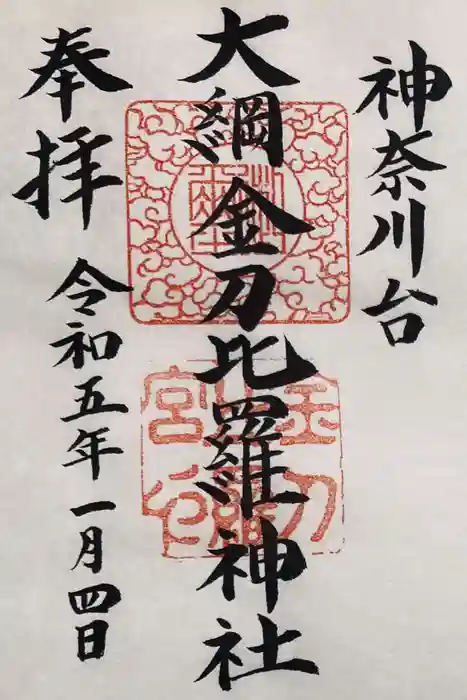 神奈川台
大綱金刀比羅神社
奉拝
令和五年一月四日